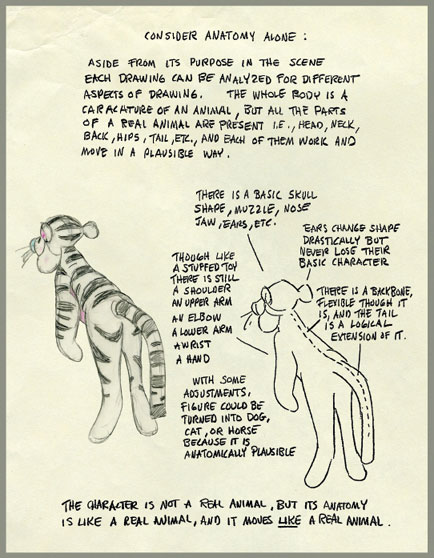 CONSIDER ANATOMY ALONE :
ASIDE FROM ITS PURPOSE IN THE SCENE
EACH DRAWING CAN BE ANALYZED FOR DIFFERENT
ASPECTS OF DRAWING. THE WHOLE BODY IS A
CARACHTURE OF AN ANIMAL, BUT ALL THE PARTS
OF A REAL ANIMAL ARE PRESENT I.E., HEAD, NECK,
BACK, HIPS, TAIL, ETC., AND EACH OF THEM WORK AND
MOVE IN A PLAUSIBLE WAY.
THERE IS A BASIC SKULL
SHAPE, MUZZLE, NOSE
JAW, EARS, ETC.
EARS CHANGE SHAPE
DRASTICALLY BUT
NEVER LOSE THEIR
BASIC CHARACTER
THOUGH LIKE
A STUFFED TOY
THERE IS STILL
A SHOULDER
AN UPPER ARM
AN ELBOW
A LOWER ARM
A WRIST
A HAND
THERE IS A BACKBONE,
FLEXIBLE THOUGH IT
IS, AND THE TAIL
IS A LOGICAL
EXTENSION OF IT.
WITH SOME
ADJUSTMENTS,
FIGURE COULD BE
TURNED INTO DOG,
CAT, OR HORSE
BECAUSE IT IS
ANATOMICALLY PLAUSIBLE
THE CHARACTER IS NOT A REAL ANIMAL, BUT ITS ANATOMY
IS LIKE A REAL ANIMAL, AND IT MOVES LIKE A REAL ANIMAL.